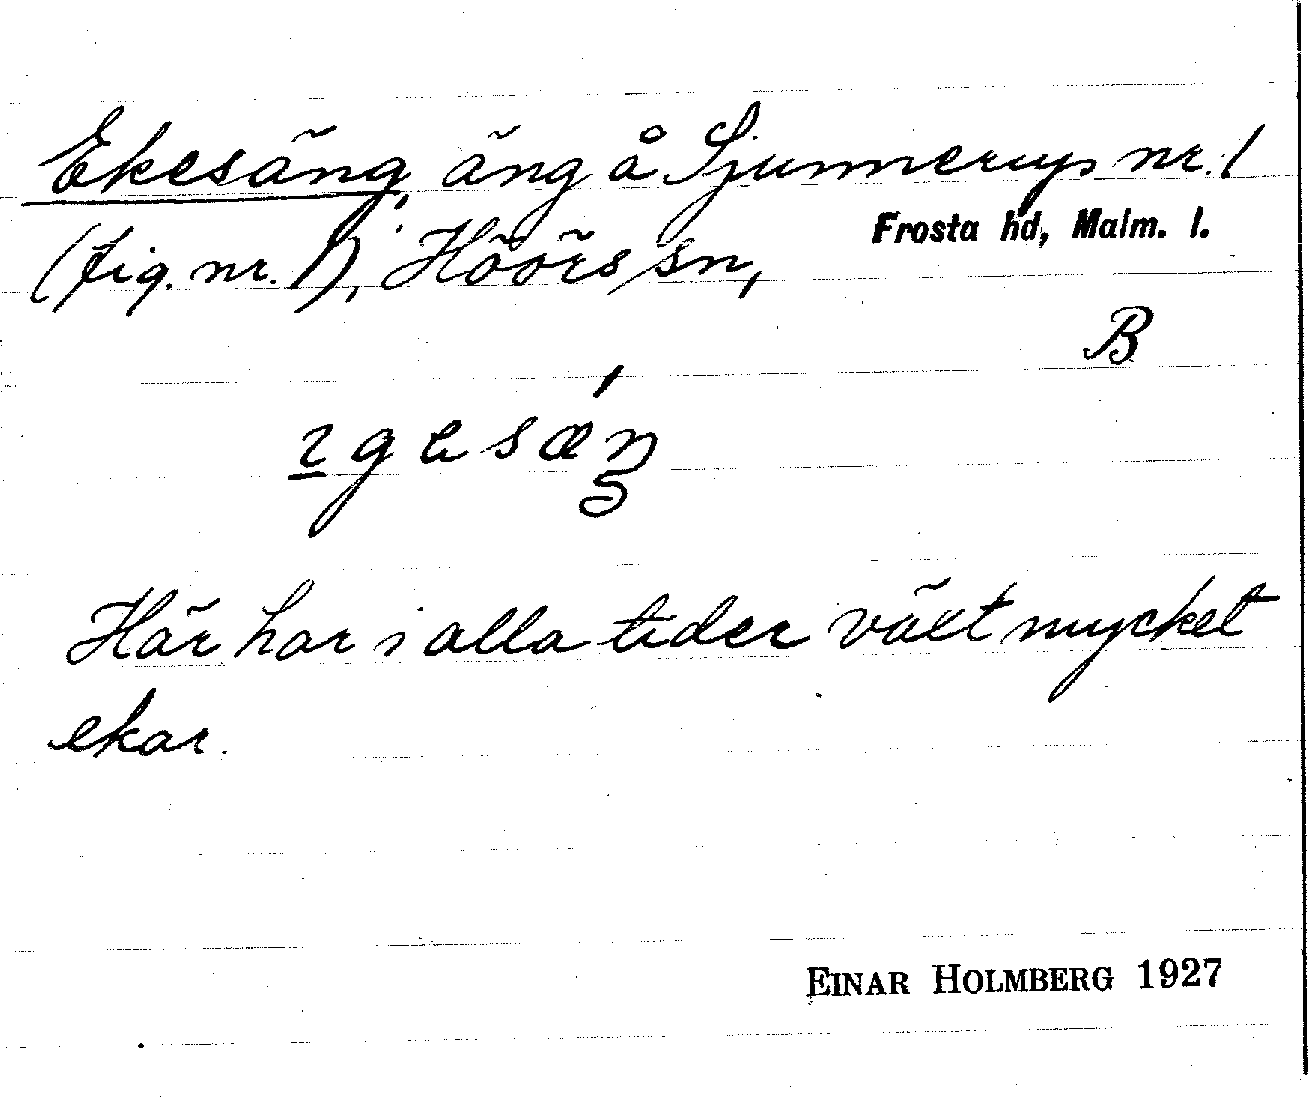 Ekesäng, äng å Sjunnerup nr. 1
Frosta hd, Malm. l.
(fig. nr. 1), Höörs sn,
B
Här har i alla tider växt mycket
ekar.
EINAR HOLMBERG 1927